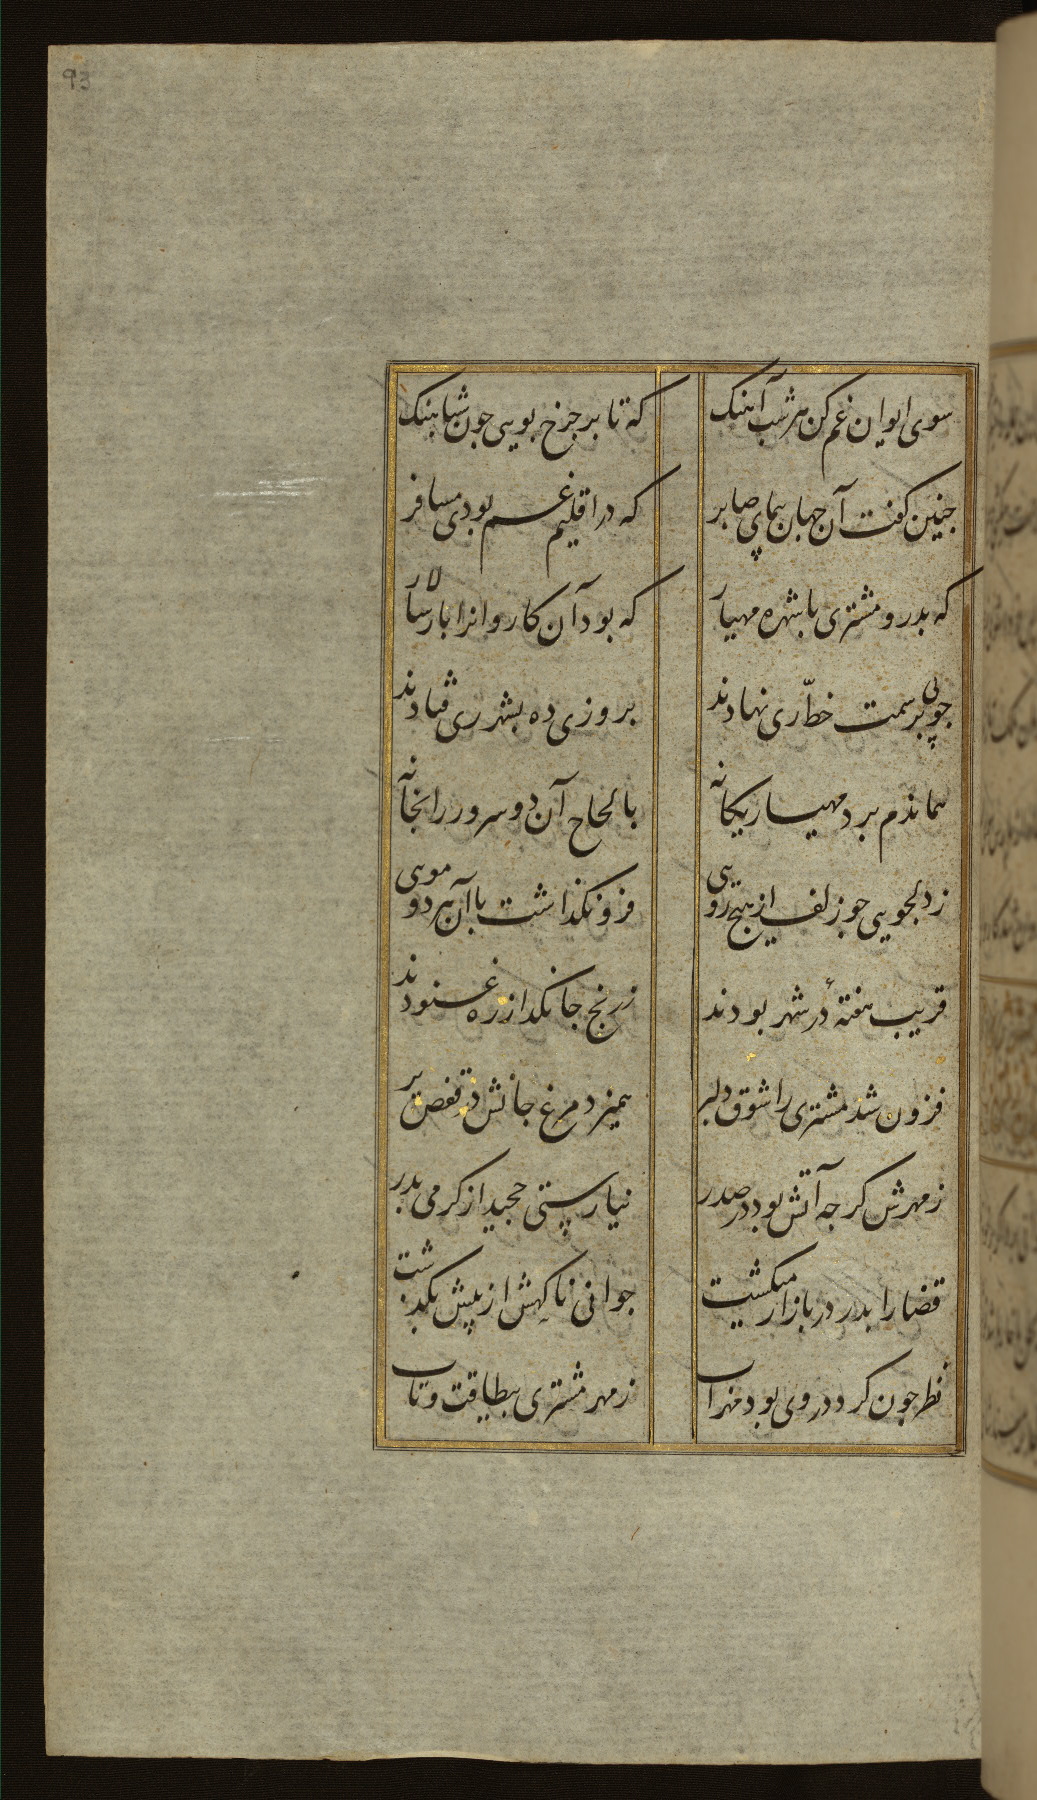 93
سوی ایوان غم کن هر شب آهنک که تا بر جرخ بویی جون شباهنک
جنین کفت آن جهان بیمای صابر که در اقلیم غم بودی مسافر
که بدر و مشتری با شهره مهیار که بود آن کاروانرا بار سالار
جو بی بر سمت خطّ ری نهادند بروزی ده بشهر ری فتادند
هماندم برد مهیار یکانه بالحاح آن دو سرور را بخانه
ز دلجویی جو زلف از هیج رویی فرو نکذاشت با آن هر دو مویی
قریب هفتهٔ در شهر بودند ز رنج جانکداز ره غنودند
فزون شد مشتری را شوق دلبر همیزد مرغ جانش در قفص بر
ز مهرش کرجه آتش بود در صدر نیارستی جخید از کرمی بدر
قضا را بدر در بازار میکشت جوانی ناکهش از پیش بکذشت
نظر جون کرد در وی بود مهراب ز مهر مشتری بیطاقت و تاب